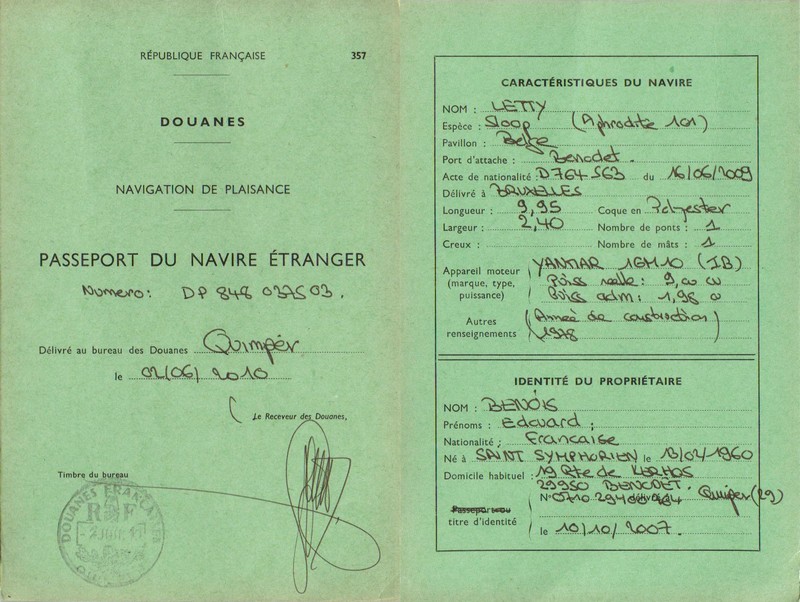 RÉPUBLIQUE FRANÇAISE 357
DOUANES
NAVIGATION DE PLAISANCE
PASSEPORT DU NAVIRE ÉTRANGER
Numero: DP 848 037503.
Délivré au bureau des Douanes Quimper
le 02/06/2010
Le Receveur des Douanes,
Timbre du bureau
DOUANES FRANÇAISES
RF
CARACTÉRISTIQUES DU NAVIRE
NOM : LETTY
Espèce : Sloop (Aphrodite 101)
Pavillon : Belge
Port d'attache : Benodet.
Acte de nationalité : D764563 du 16/06/2009
Délivré à BRUXELLES
Longueur : 9,95 Coque en Polyester
Largeur : 2,40 Nombre de ponts : 1
Creux : Nombre de mâts : 1
Appareil moteur (marque, type, puissance) YANMAR 1GM10 (IB)
Puiss réelle: 9,00 CV
Puiss adm: 1,98 CV
Autres renseignements (Année de construction)
1978
IDENTITÉ DU PROPRIÉTAIRE
NOM : BENOIS
Prénoms : Edouard ;
Nationalité : Francaise
Né à SAINT SYMPHORIEN le 13/02/1960
Domicile habituel : 19 Rte de
29950 BENODET.
Quimper (29)
Passeport ou
titre d'identité
le 10/10/2007.